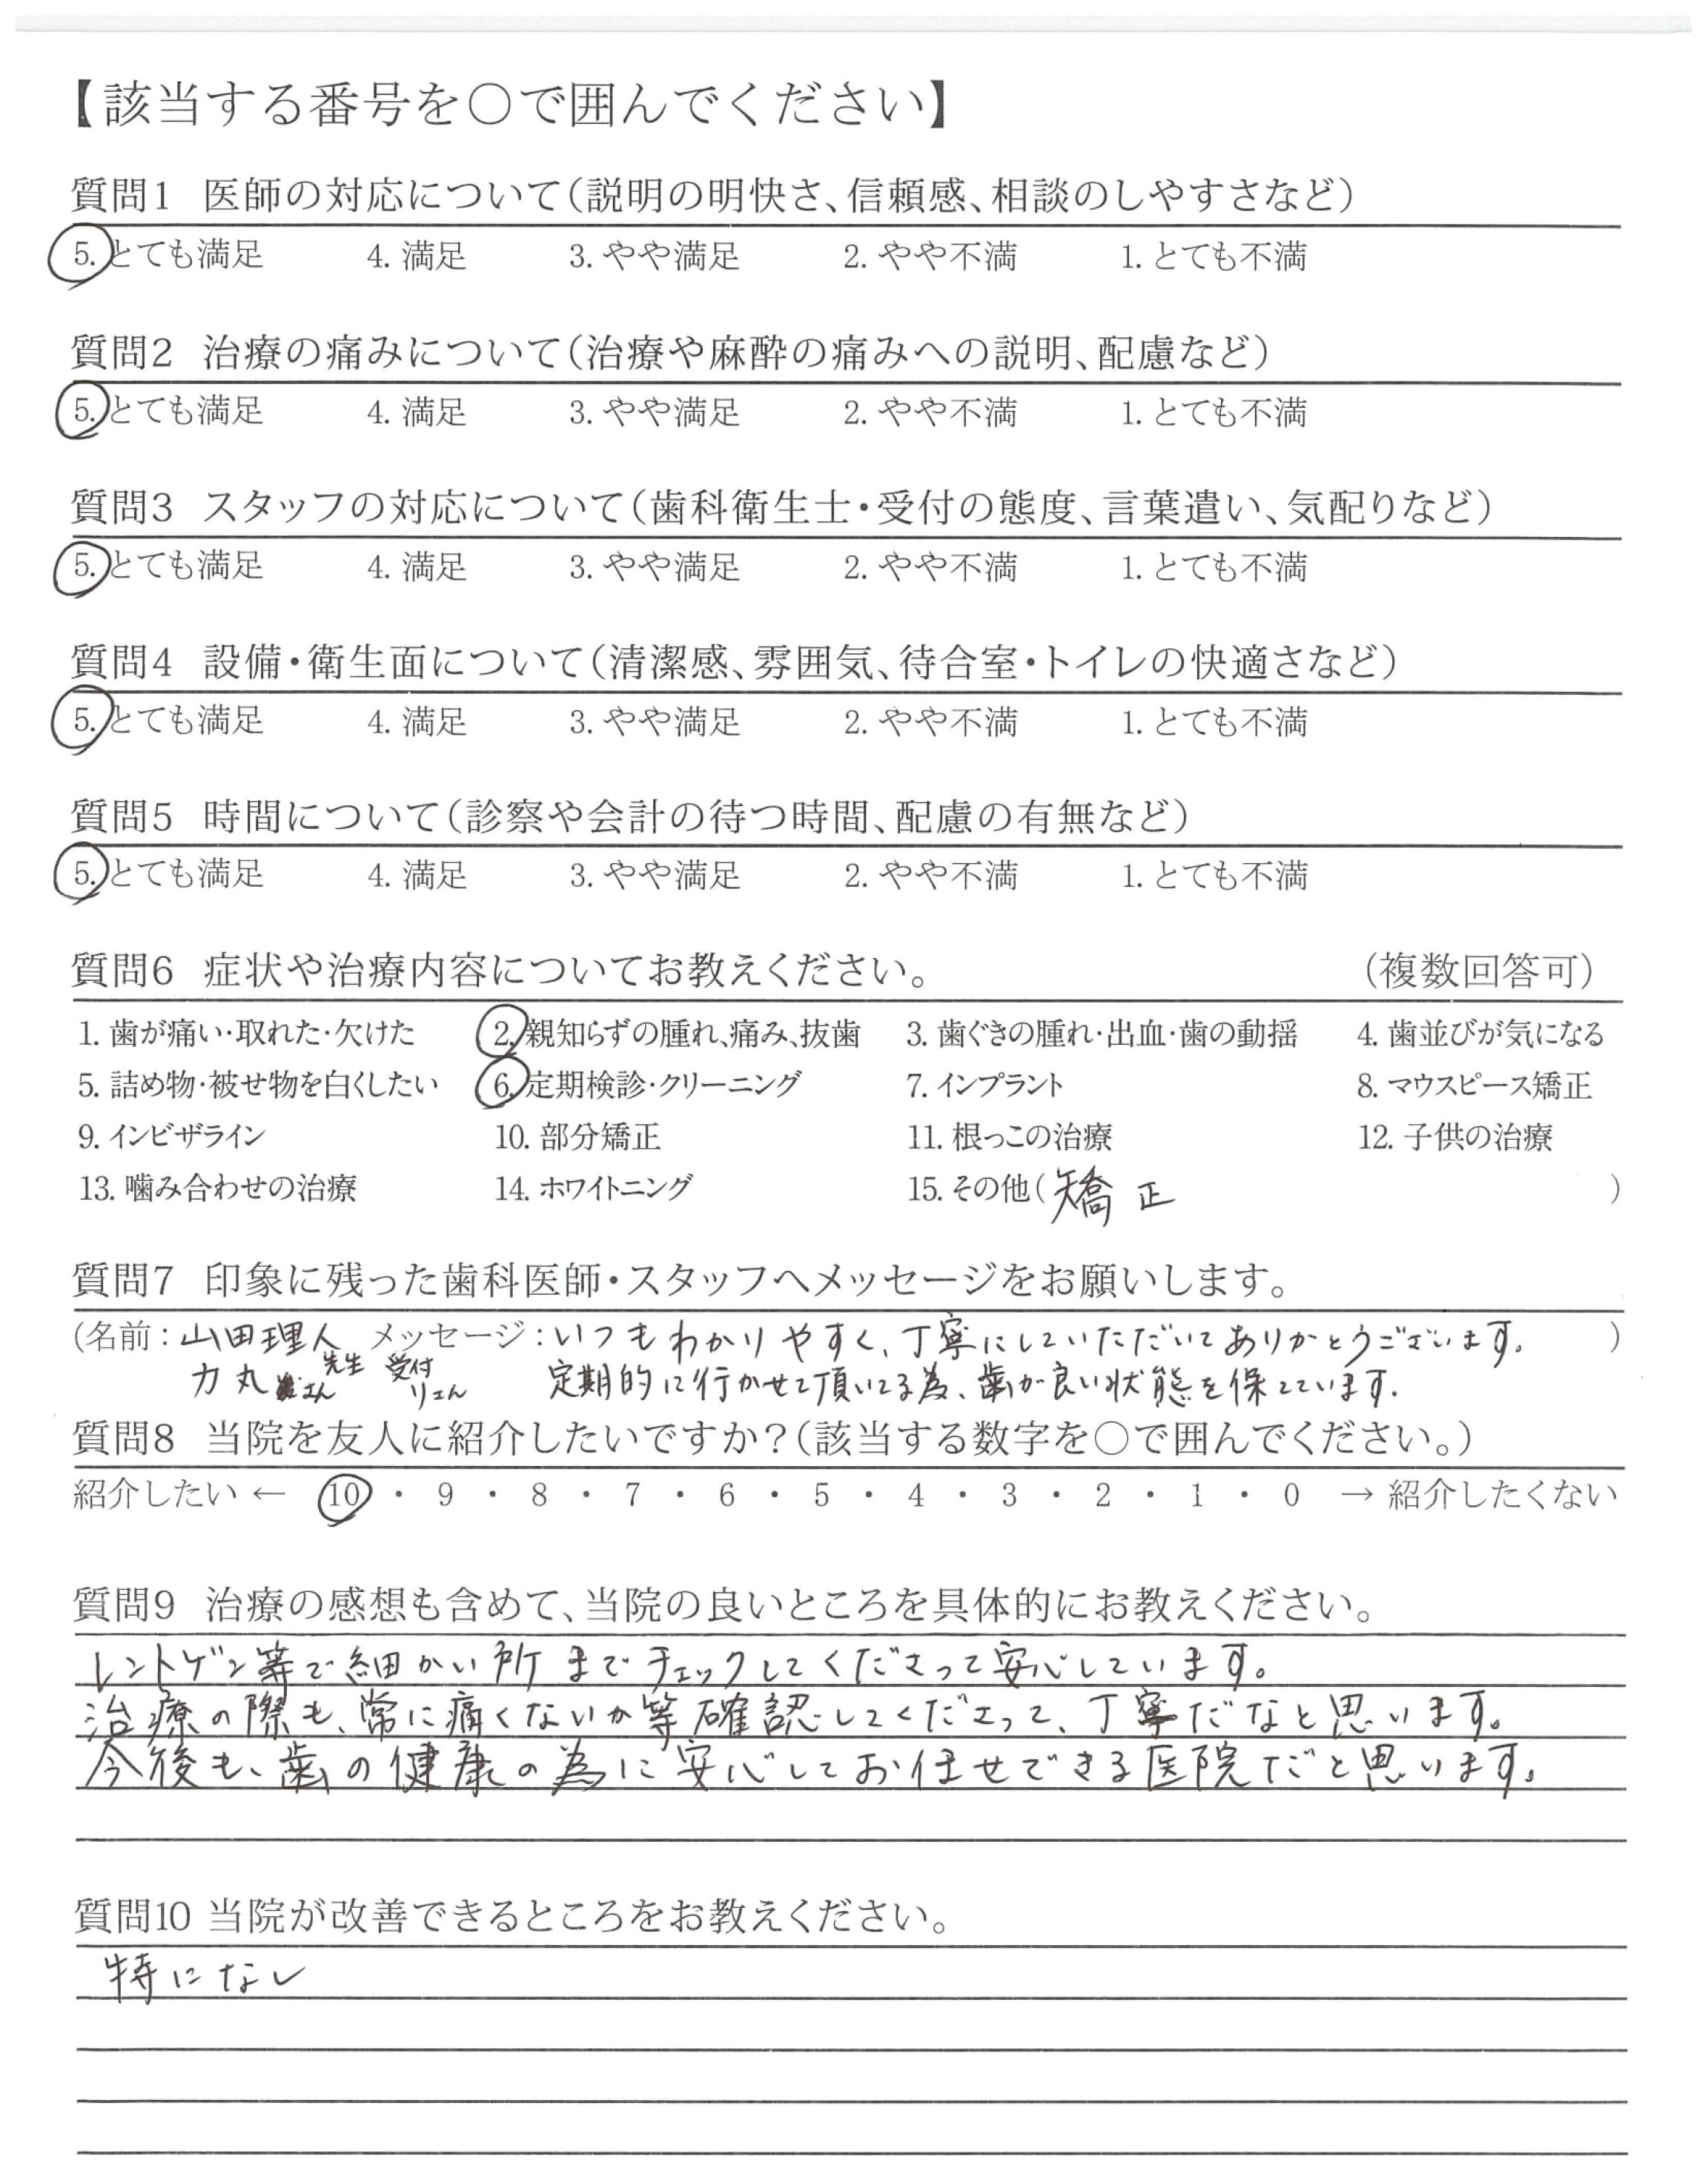 【該当する番号を〇で囲んでください】
質問1 医師の対応について(説明の明快さ、信頼感、相談のしやすさなど)
5. とても満足 4. 満足 3. やや満足 2. やや不満 1. とても不満
質問2 治療の痛みについて(治療や麻酔の痛みへの説明、配慮など)
5. とても満足 4. 満足 3. やや満足 2. やや不満 1. とても不満
質問3 スタッフの対応について(歯科衛生士・受付の態度、言葉遣い、気配りなど)
5. とても満足 4. 満足 3. やや満足 2. やや不満 1. とても不満
質問4 設備・衛生面について(清潔感、雰囲気、待合室・トイレの快適さなど)
5. とても満足 4. 満足 3. やや満足 2. やや不満 1. とても不満
質問5 時間について(診察や会計の待つ時間、配慮の有無など)
5. とても満足 4. 満足 3. やや満足 2. やや不満 1. とても不満
質問6 症状や治療内容についてお教えください。 (複数回答可)
1. 歯が痛い・取れた・欠けた 2. 親知らずの腫れ、痛み、抜歯 3. 歯ぐきの腫れ・出血・歯の動揺 4. 歯並びが気になる
5. 詰め物・被せ物を白くしたい 6. 定期検診・クリーニング 7. インプラント 8. マウスピース矯正
9. インビザライン 10. 部分矯正 11. 根っこの治療 12. 子供の治療
13. 噛み合わせの治療 14. ホワイトニング 15. その他(矯正 )
質問7 印象に残った歯科医師・スタッフへメッセージをお願いします。
(名前:山田理人 メッセージ:いつもわかりやすく、丁寧にしていただいてありがとうございます。 )
先生 受付
力丸 さん 定期的に行かせて頂いてる為、歯が良い状態を保てています。
質問8 当院を友人に紹介したいですか?(該当する数字を〇で囲んでください。)
紹介したい ← 10 ・ 9 ・ 8 ・ 7 ・ 6 ・ 5 ・ 4 ・ 3 ・ 2 ・ 1 ・ 0 → 紹介したくない
質問9 治療の感想も含めて、当院の良いところを具体的にお教えください。
レントゲン等で細かい所までチェックしてくださって安心しています。
治療の際も、常に痛くないか等確認してくださって、丁寧だなと思います。
今後も、歯の健康の為に安心してお任せできる医院だと思います。
質問10 当院が改善できるところをお教えください。
特になし